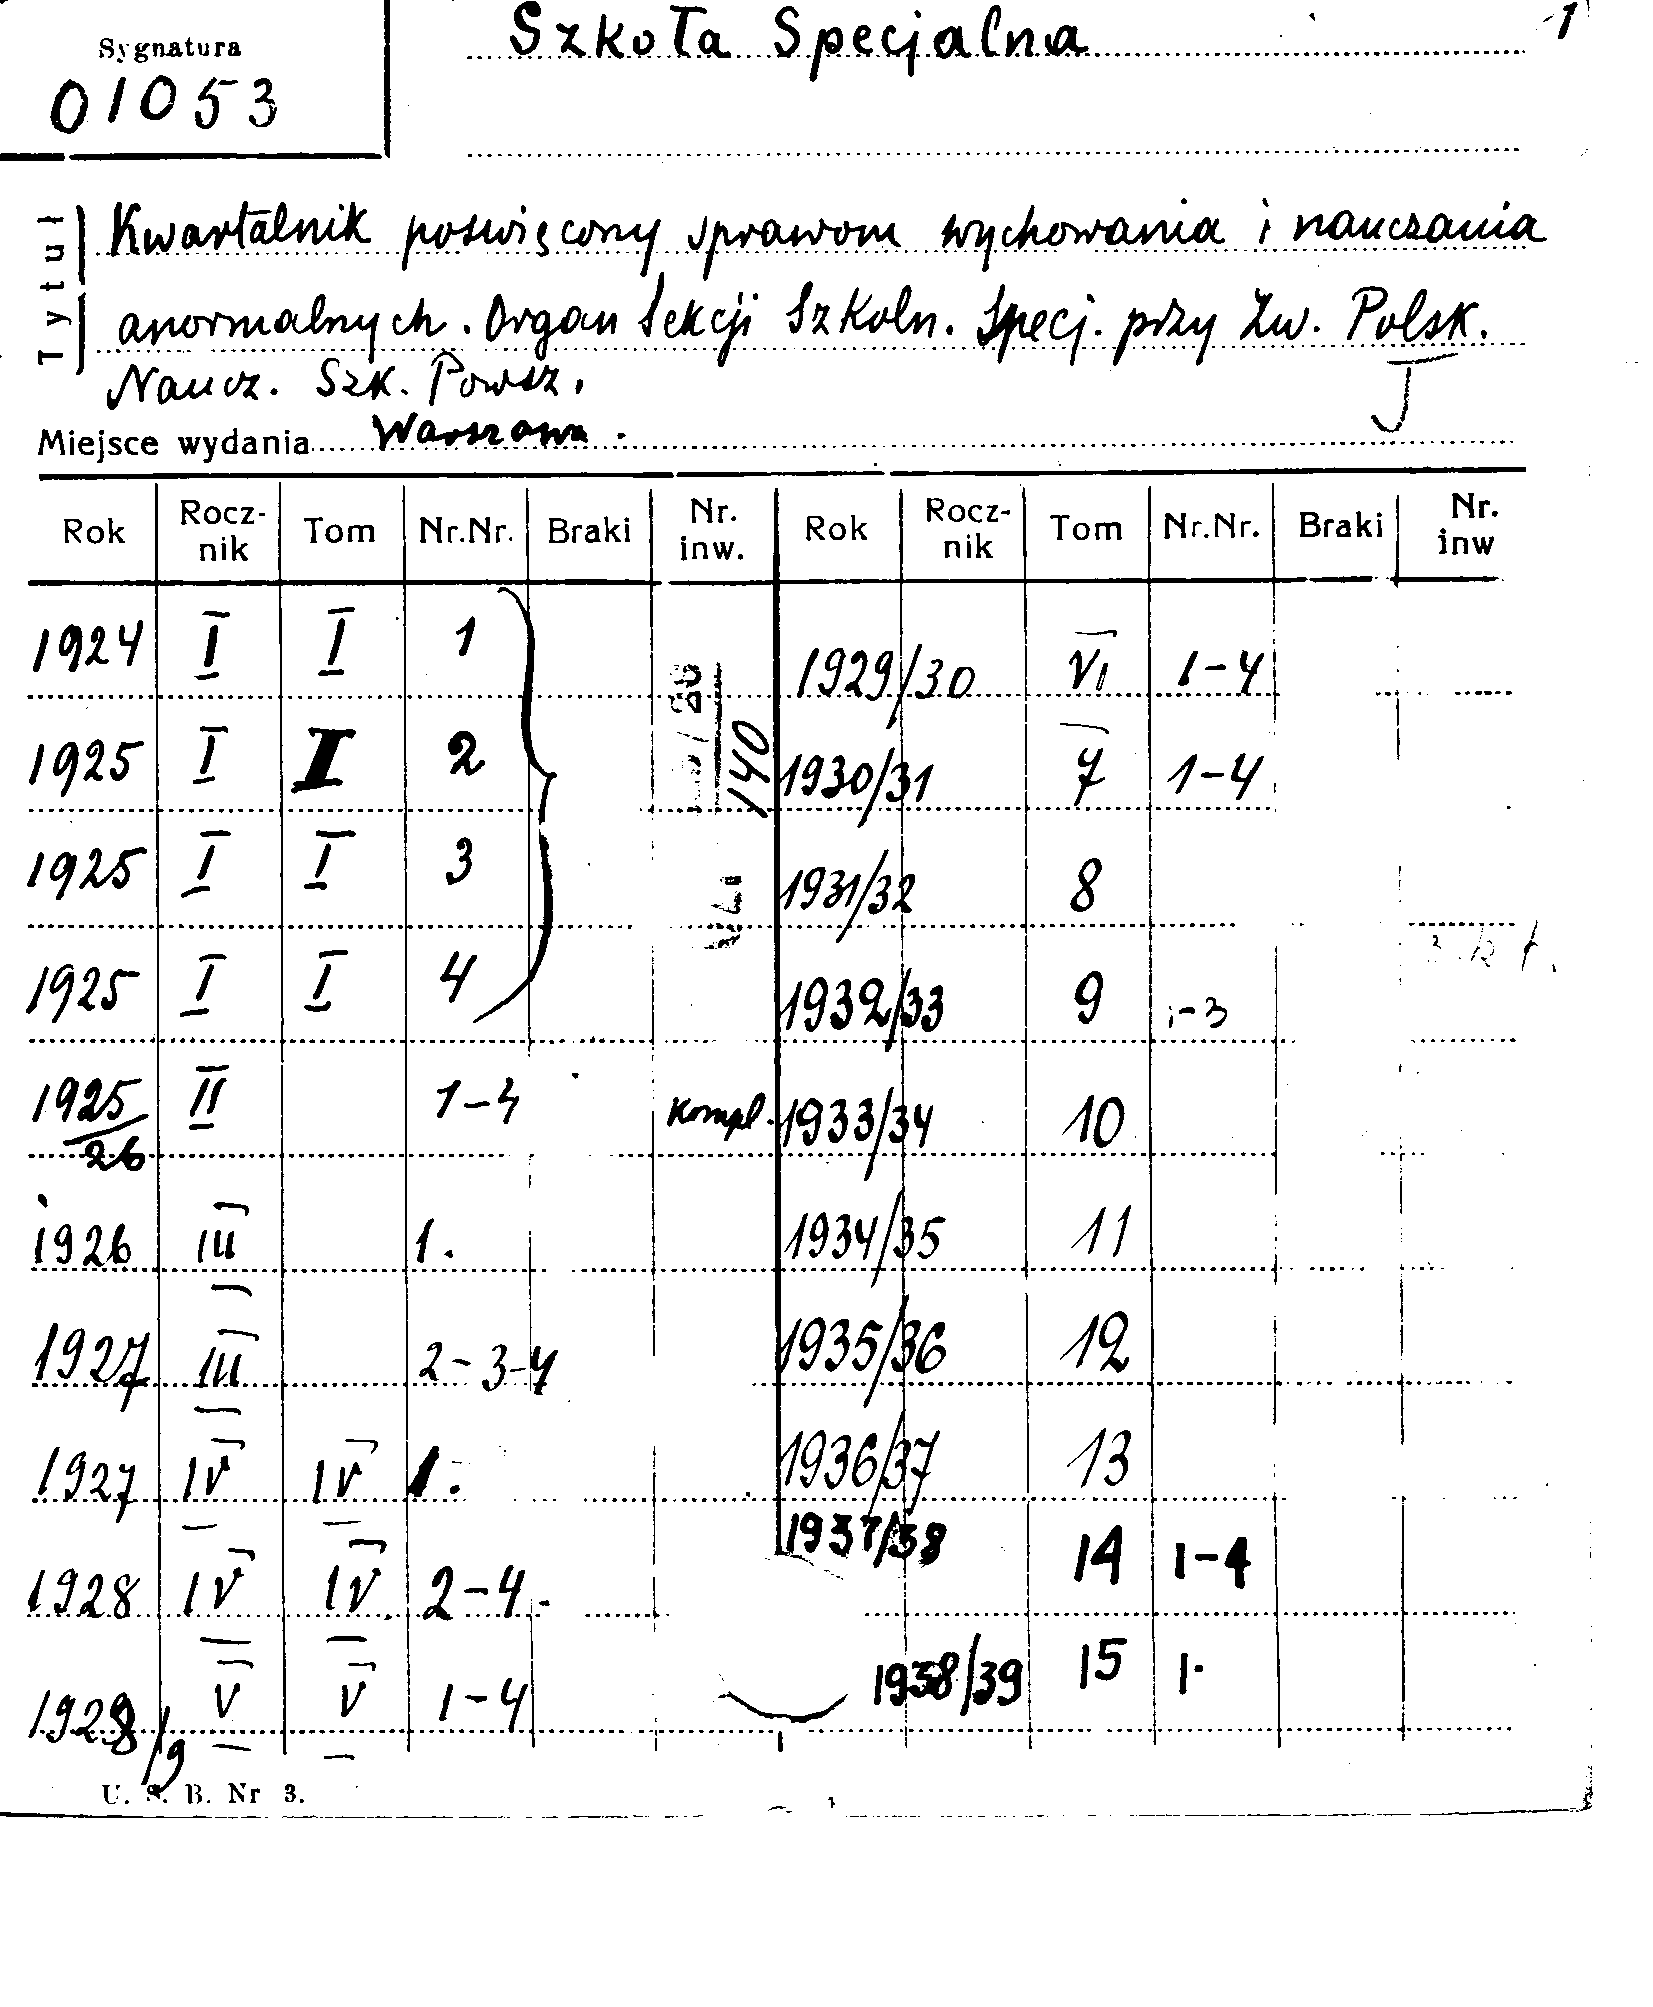 Szkoła Specjalna 1
Sygnatura
01053
Tytuł
Kwartalnik poswięcony sprawom wychowania i nauczania
anormalnych. Organ Sekcji Szkoln. Specj. przy Zw. Polsk.
Naucz. Szk. Powsz.
Miejsce wydania Warszawa.
Rok Rocz-nik Tom Nr.Nr. Braki Nr. inw. Rok Rocz-nik Tom Nr.Nr. Braki Nr. inw
1924 I I 1 1929/30 VI 1-4
140
1925 I I 2 1930/31 7 1-4
1925 I I 3 1931/32 8
1925 I I 4 1932/33 9 1-3
1925/26 II 1-4 kompl. 1933/34 10
1926 III 1. 1934/35 11
1927 III 2-3-4 1935/36 12
1927 IV IV 1. 1936/37 13
1928 IV IV 2-4. 1937/38 14 1-4
1928/9 V V 1-4 1938/39 15 1.
U. S. B. Nr 3.